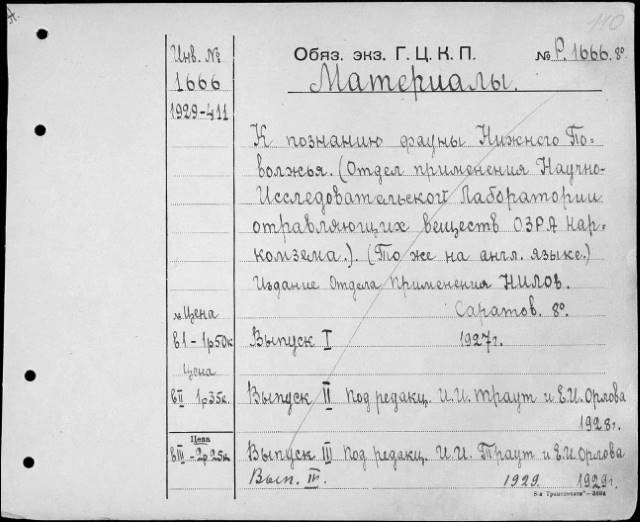 А.
110
Инв. №
1666
1929-411
Обяз. экз. Г. Ц. К. П.
№ Р. 1666. 8°
Материалы.
К познанию фауны Нижнего По-
волжья. (Отдел применения Научно-
Исследовательской Лаборатории
отравляющих веществ ОЗРА Нар-
комзема.). (То же на англ. языке.)
Издание Отдела Применения НИЛОВ.
Саратов. 8°.
№ Цена
в I - 1р50к
Выпуск I 1927г.
Цена
в II 1р35к.
Выпуск II Под редакц. И.И. Траут и Е.И. Орлова
1928г.
Цена
в III - 2р25к
Выпуск III Под редакц. И.И. Траут и Е.И. Орлова
Вып. III. 1929. 1929г.